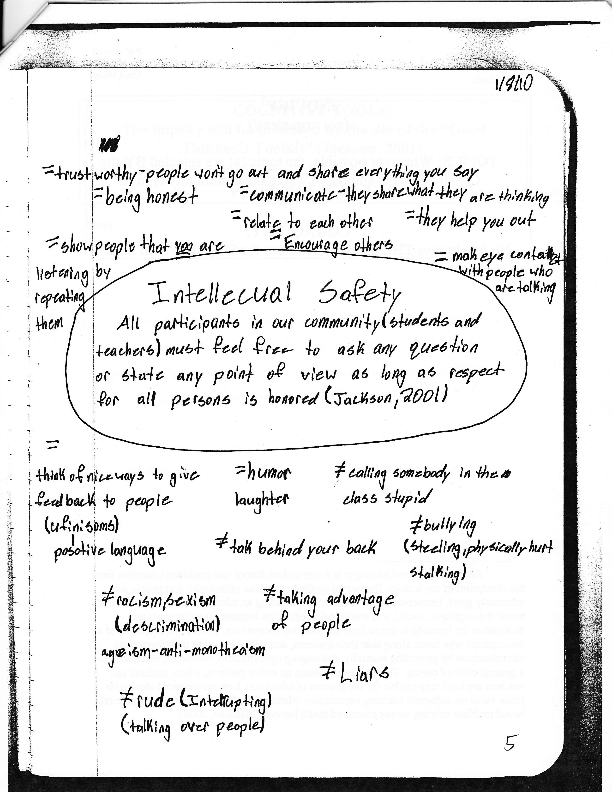 1/8/10
=trustworthy-people won't go out and share everything you say
=being honest
=communicate-they share what they are thinking
=relate to each other
=they help you out
=show people that you are
listening by
repeating
them
= Encourage others
= make eye contact
with people who
are talking
Intellecual Safety
All participants in our community(students and
teachers) must feel free to ask any question
or state any point of view as long as respect
for all persons is honored (Jackson, 2001)
=
think of nice ways to give
feedback to people
(ufinisoms)
posotive language
=humor
laughter
≠calling somebody in the
class stupid
≠talk behind your back
≠bullying
(stealing, physically hurt
stalking)
≠racism,sexism
(descrimination)
ageism-anti-monotheaism
≠taking advantage
of people
≠Liars
≠rude (Interrupting)
(talking over people)
5